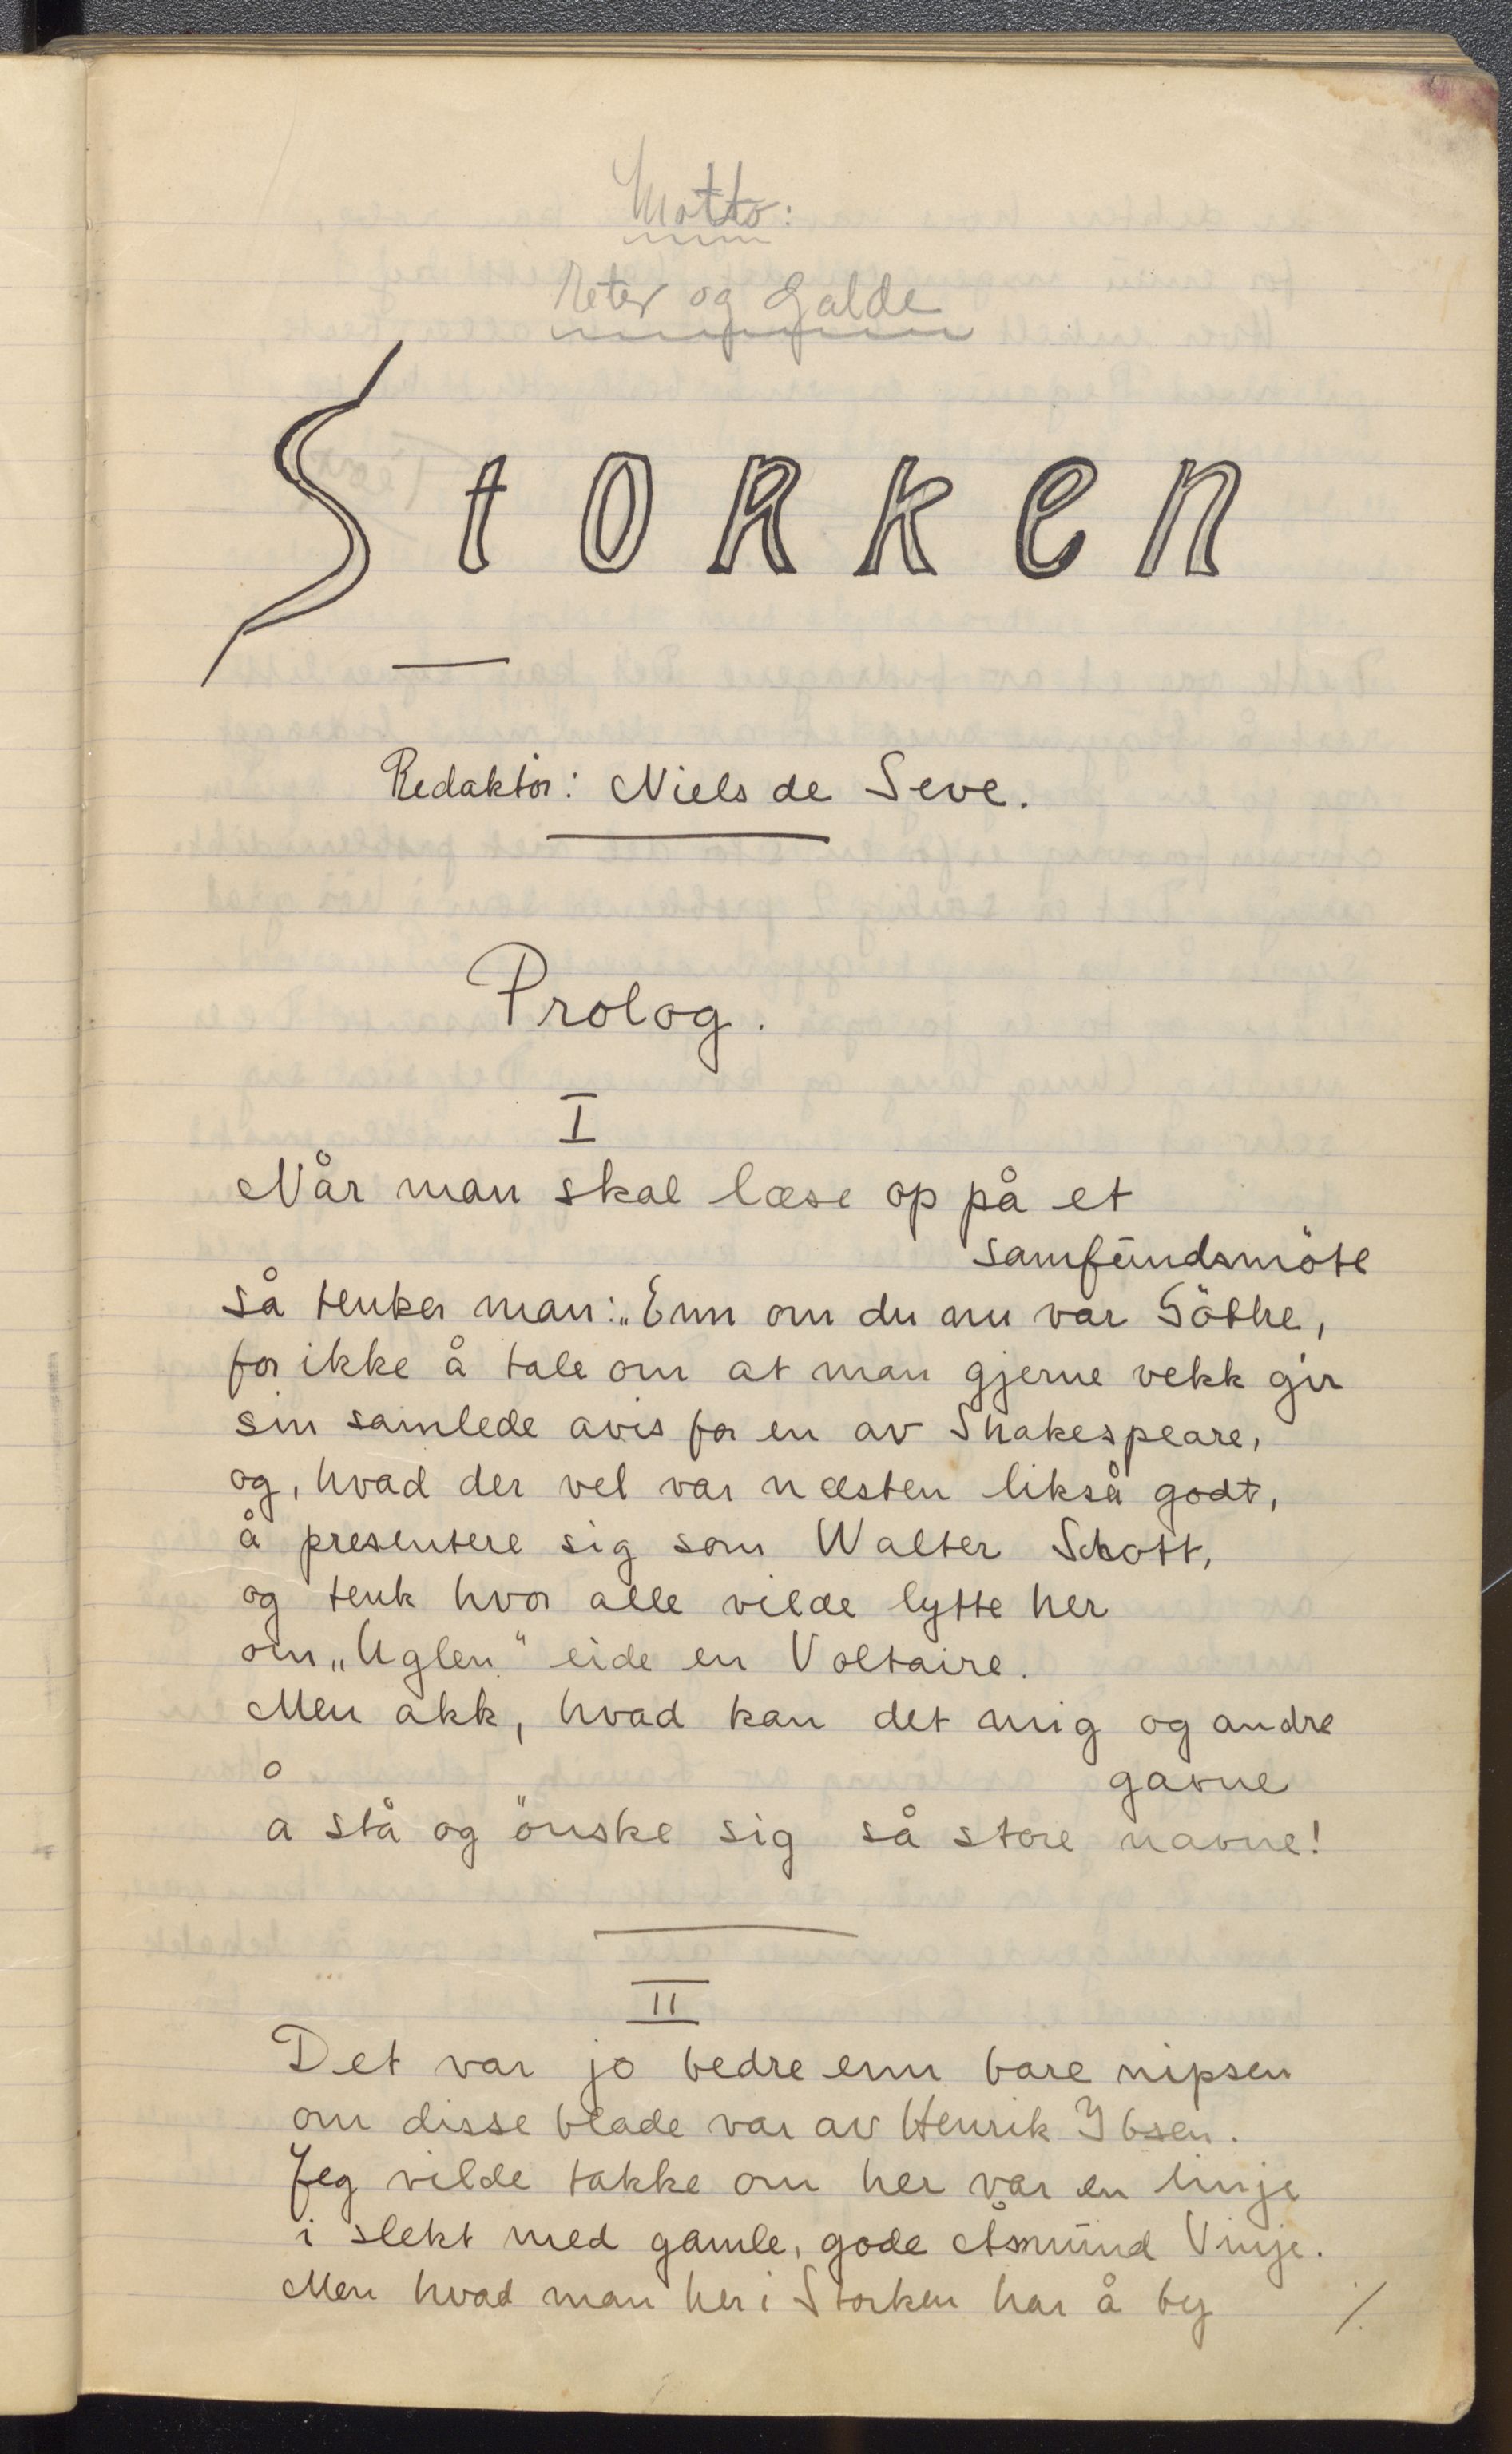 Motto:
Reter og Galde
StoRken
Redaktör: Niels de Seve.
Prolog.
I
Når man skal læse op på et
samfundsmöte
så tenker man: „Enn om du nu var Göthe,
for ikke å tale om at man gjerne vekk gir
sin samlede avis for en av Shakespeare,
og, hvad der vel var næsten likså godt,
å presentere sig som Walter Schott,
og tenk hvor alle vilde lytte her
om „Uglen" eide en Voltaire.
Men akk, hvad kan det mig og andre
gavne
å stå og önske sig så store navne!
II
Det var jo bedre enn bare nipsen
om disse blade var av Henrik Ibsen.
Jeg vilde takke om her var en linje
i slekt med gamle, gode Åsmund Vinje.
Men hvad man her i Storken har å by
%